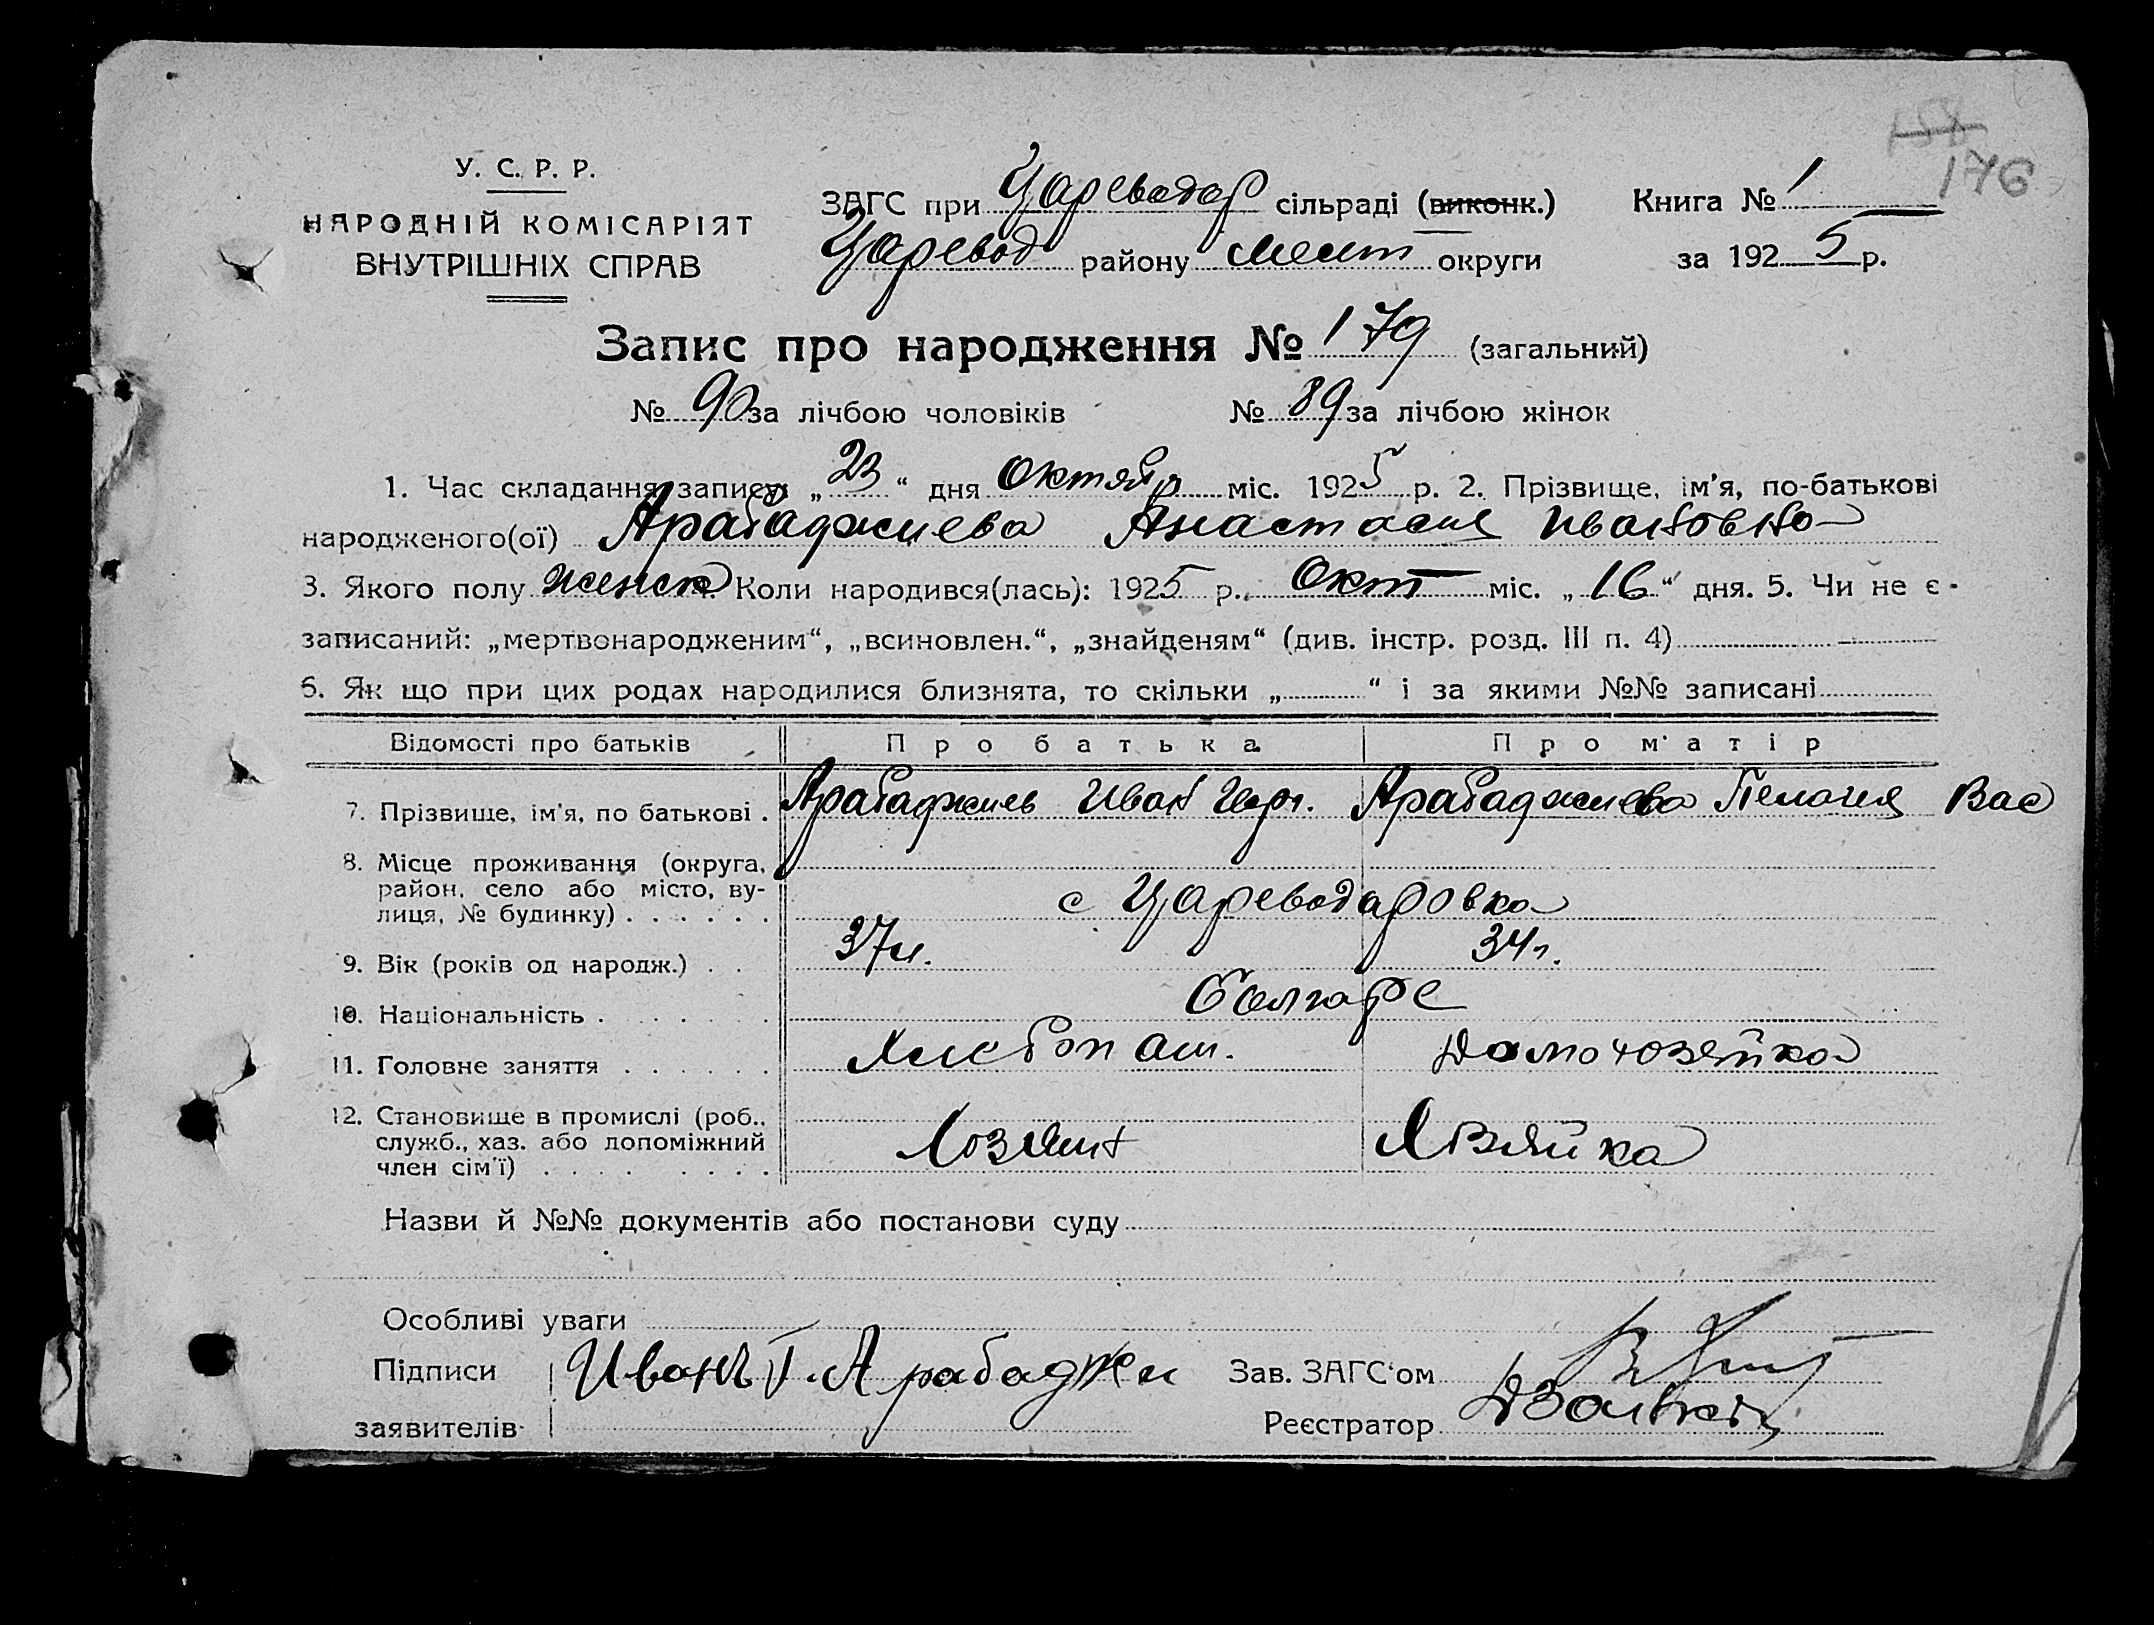 158
176
У. С. Р. Р.
НАРОДНІЙ КОМІСАРІЯТ
ВНУТРІШНІХ СПРАВ
ЗАГС при Цареводар сільраді (виконк.) Книга № 1
Царевод району Мелит округи за 1925 р.
Запис про народження № 179 (загальний)
№ 90 за лічбою чоловіків № 89 за лічбою жінок
1. Час складання запису: „23“ дня Октября міс. 1925 р. 2. Прізвище, ім'я, по-батькові
народженого(ої) Арабаджиева Анастасия Ивановна
3. Якого полу женск 4. Коли народився(лась): 1925 р. Окт міс. „16“ дня. 5. Чи не є
записаний: „мертвонародженим“, „всиновлен.“, „знайденям“ (див. інстр. розд. III п. 4)
6. Як що при цих родах народилися близнята, то скільки „ “ і за якими №№ записані
Відомості про батьків Про батька Про матір
7. Прізвище, ім'я, по батькові . Арабаджиев Иван Геор. Арабаджиева Пелагия Вас
8. Місце проживання (округа,
район, село або місто, ву-
лиця, № будинку) . . . . . . с Цареводаровка
9. Вік (років од народж.) . . 37 л. 34 г.
10. Національність . . . . . . Болгаре
11. Головне заняття . . . . . . Хлебопаш. Домохозяйка
12. Становище в промислі (роб.,
служб., хаз. або допоміжний
член сім'ї) . . . . . . . . Хозяин Хозяйка
Назви й №№ документів або постанови суду
Особливі уваги
Підписи Иванъ Г. Арабаджи Зав. ЗАГС'ом
заявителів Реєстратор